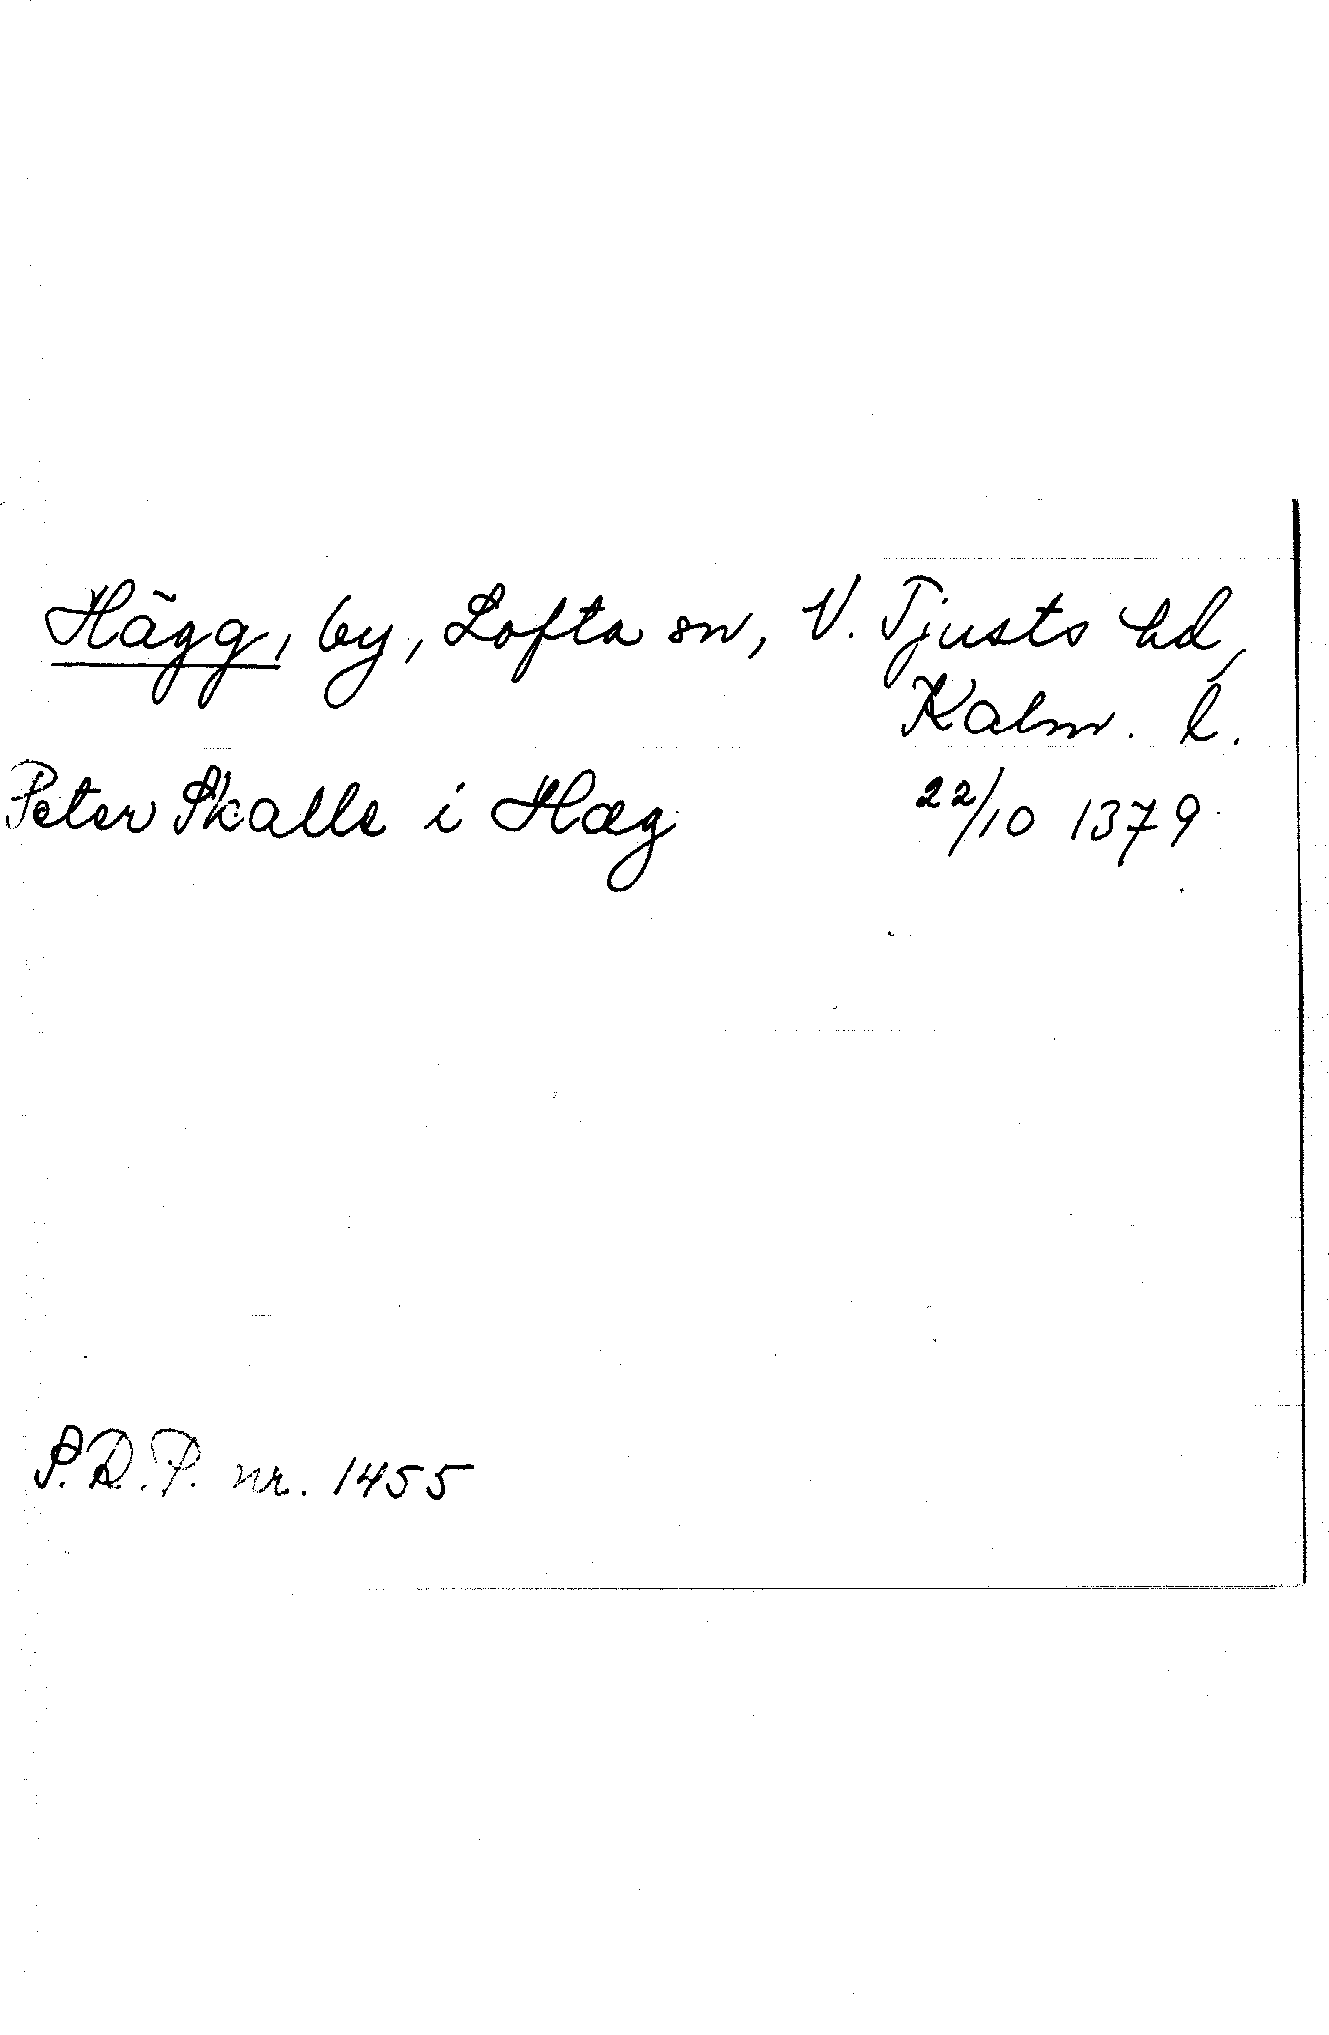 Hägg, by, Lofta sn, V. Tjusts hd,
Kalm. l.
Peter Skalle i Hæg 22/10 1379
S.R.P. nr. 1455